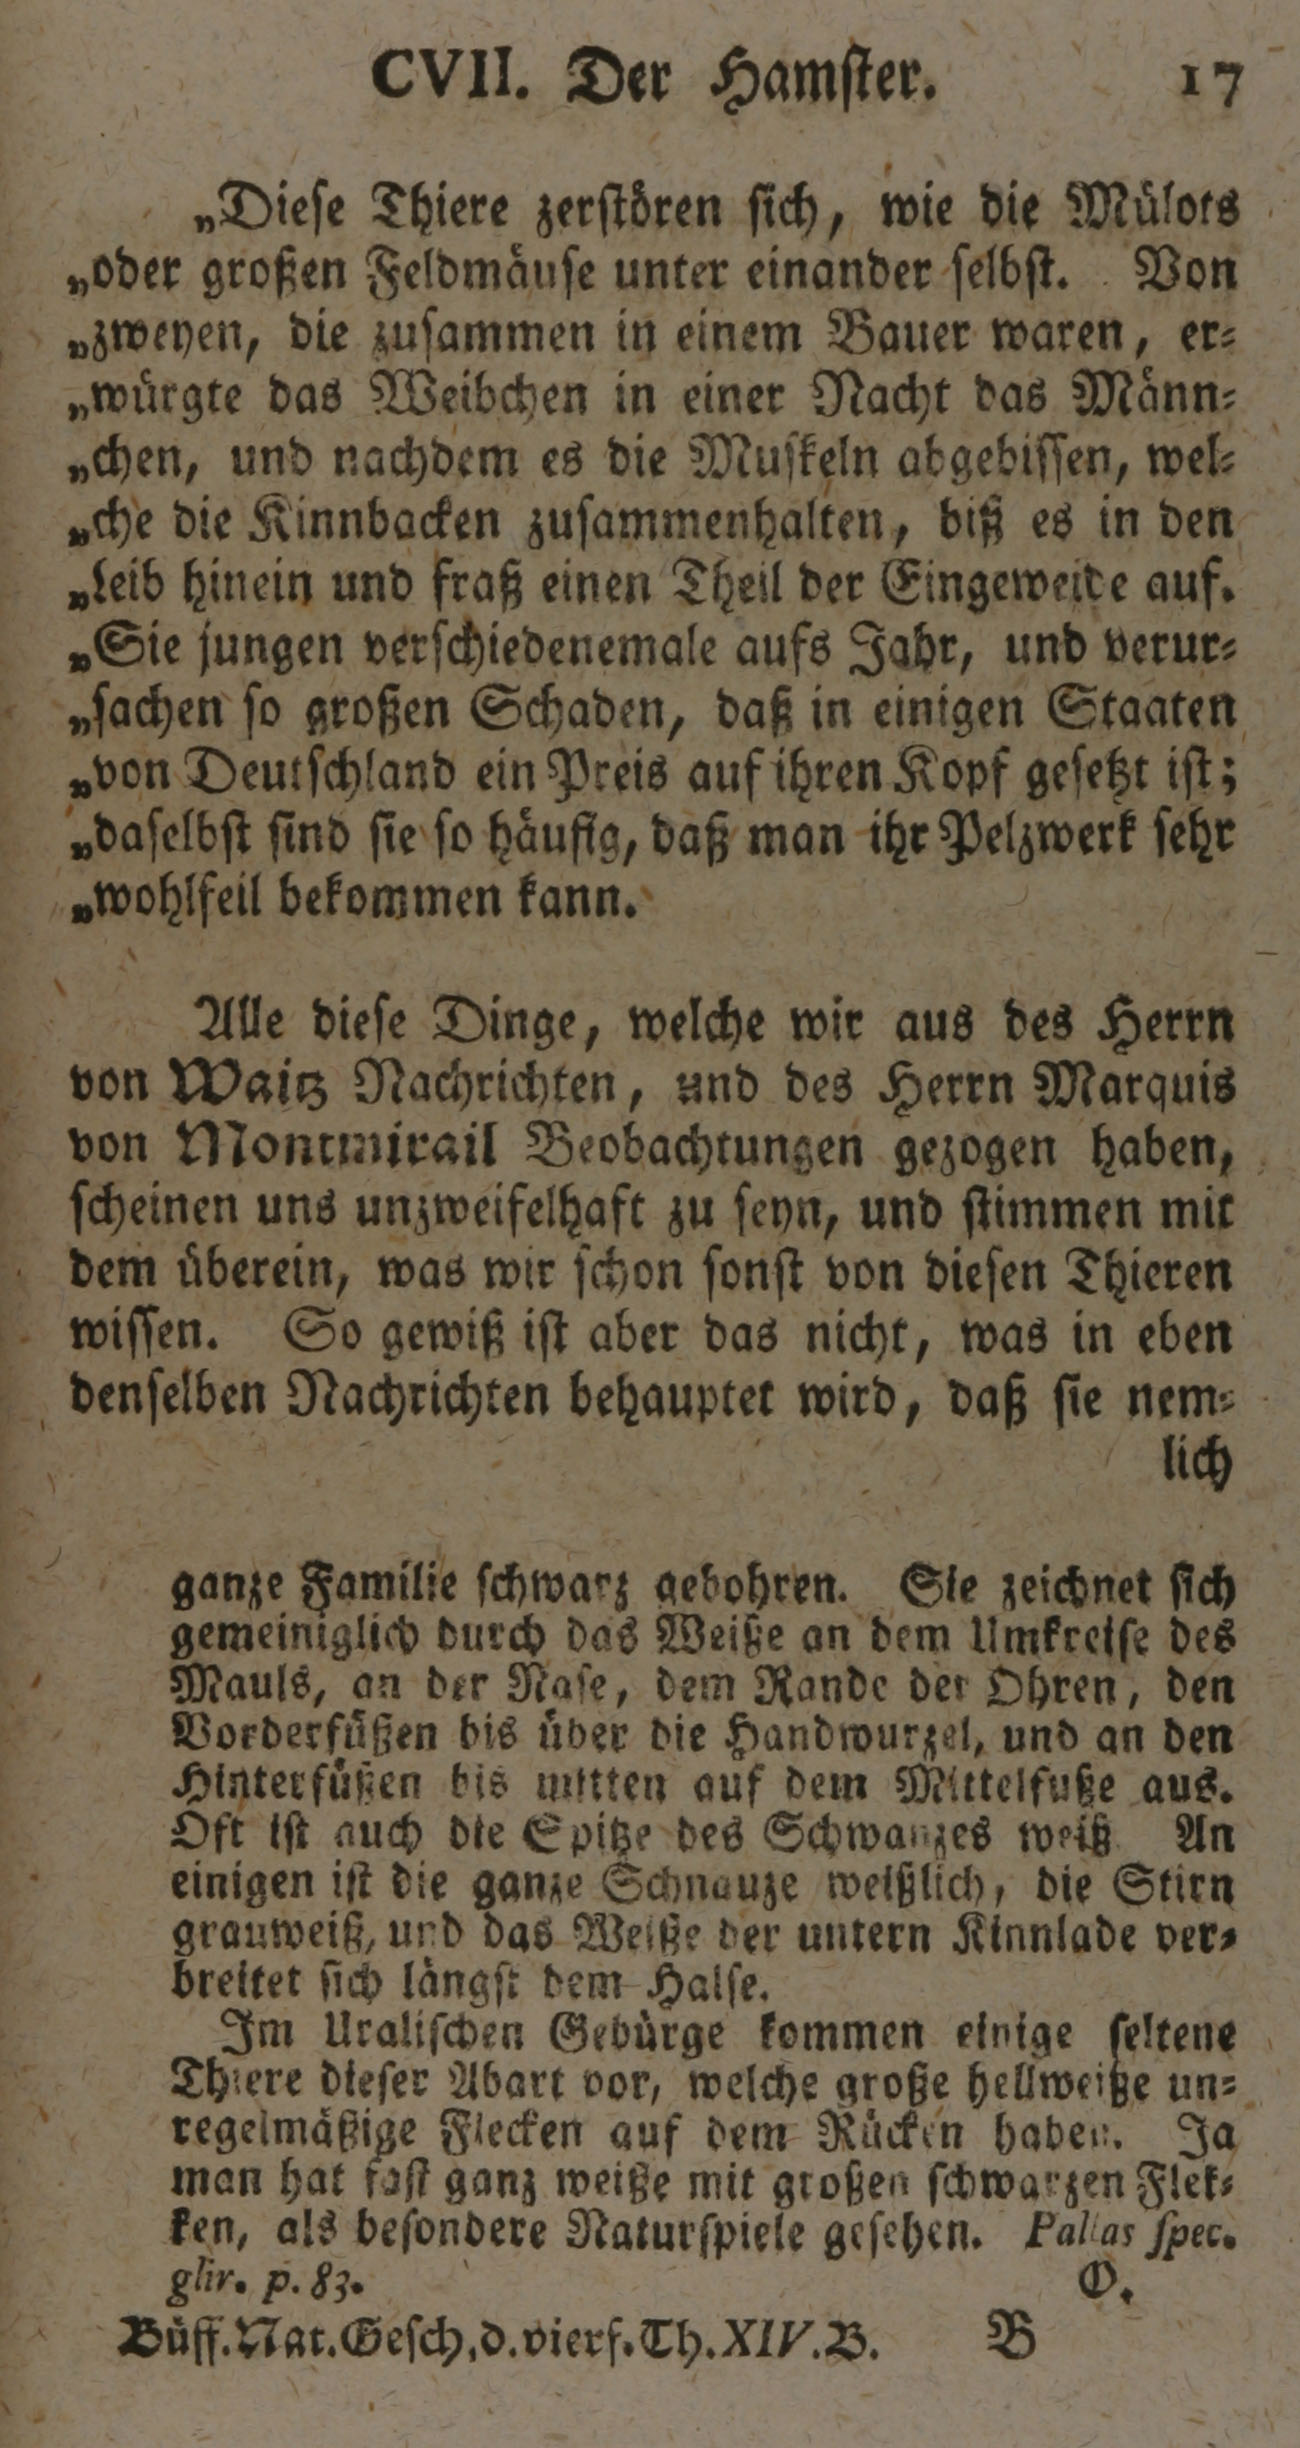 CVII. Der Hamster. 17
„Diese Thiere zerstören sich, wie die Mülots
„oder großen Feldmäuse unter einander selbst. Von
„zweyen, die zusammen in einem Bauer waren, er-
„würgte das Weibchen in einer Nacht das Männ-
„chen, und nachdem es die Muskeln abgebissen, wel-
„che die Kinnbacken zusammenhalten, biß es in den
„Leib hinein und fraß einen Theil der Eingeweide auf.
„Sie jungen verschiedenemale aufs Jahr, und verur-
„sachen so großen Schaden, daß in einigen Staaten
„von Deutschland ein Preis auf ihren Kopf gesetzt ist;
„daselbst sind sie so häufig, daß man ihr Pelzwerk sehr
„wohlfeil bekommen kann.
Alle diese Dinge, welche wir aus des Herrn
von Waitz Nachrichten, und des Herrn Marquis
von Montmirail Beobachtungen gezogen haben,
scheinen uns unzweifelhaft zu seyn, und stimmen mit
dem überein, was wir schon sonst von diesen Thieren
wissen. So gewiß ist aber das nicht, was in eben
denselben Nachrichten behauptet wird, daß sie nem-
lich
ganze Familie schwarz gebohren. Sie zeichnet sich
gemeiniglich durch das Weiße an dem Umkreise des
Mauls, an der Nase, dem Rande der Ohren, den
Vorderfüßen bis über die Handwurzel, und an den
Hinterfüßen bis mitten auf dem Mittelfuße aus.
Oft ist auch die Spitze des Schwanzes weiß An
einigen ist die ganze Schnauze weißlich, die Stirn
grauweiß, und das Weiße der untern Kinnlade ver-
breitet sich längst dem Halse.
Im Uralischen Gebürge kommen einige seltene
Thiere dieser Abart vor, welche große hellweiße un-
regelmäßige Flecken auf dem Rücken haben. Ja
man hat fast ganz weiße mit großen schwarzen Flek-
ken, als besondere Naturspiele gesehen. Pallas spec.
glir. p. 83. O.
Büff. Nat. Gesch. d. vierf. Th. XIV. B. B